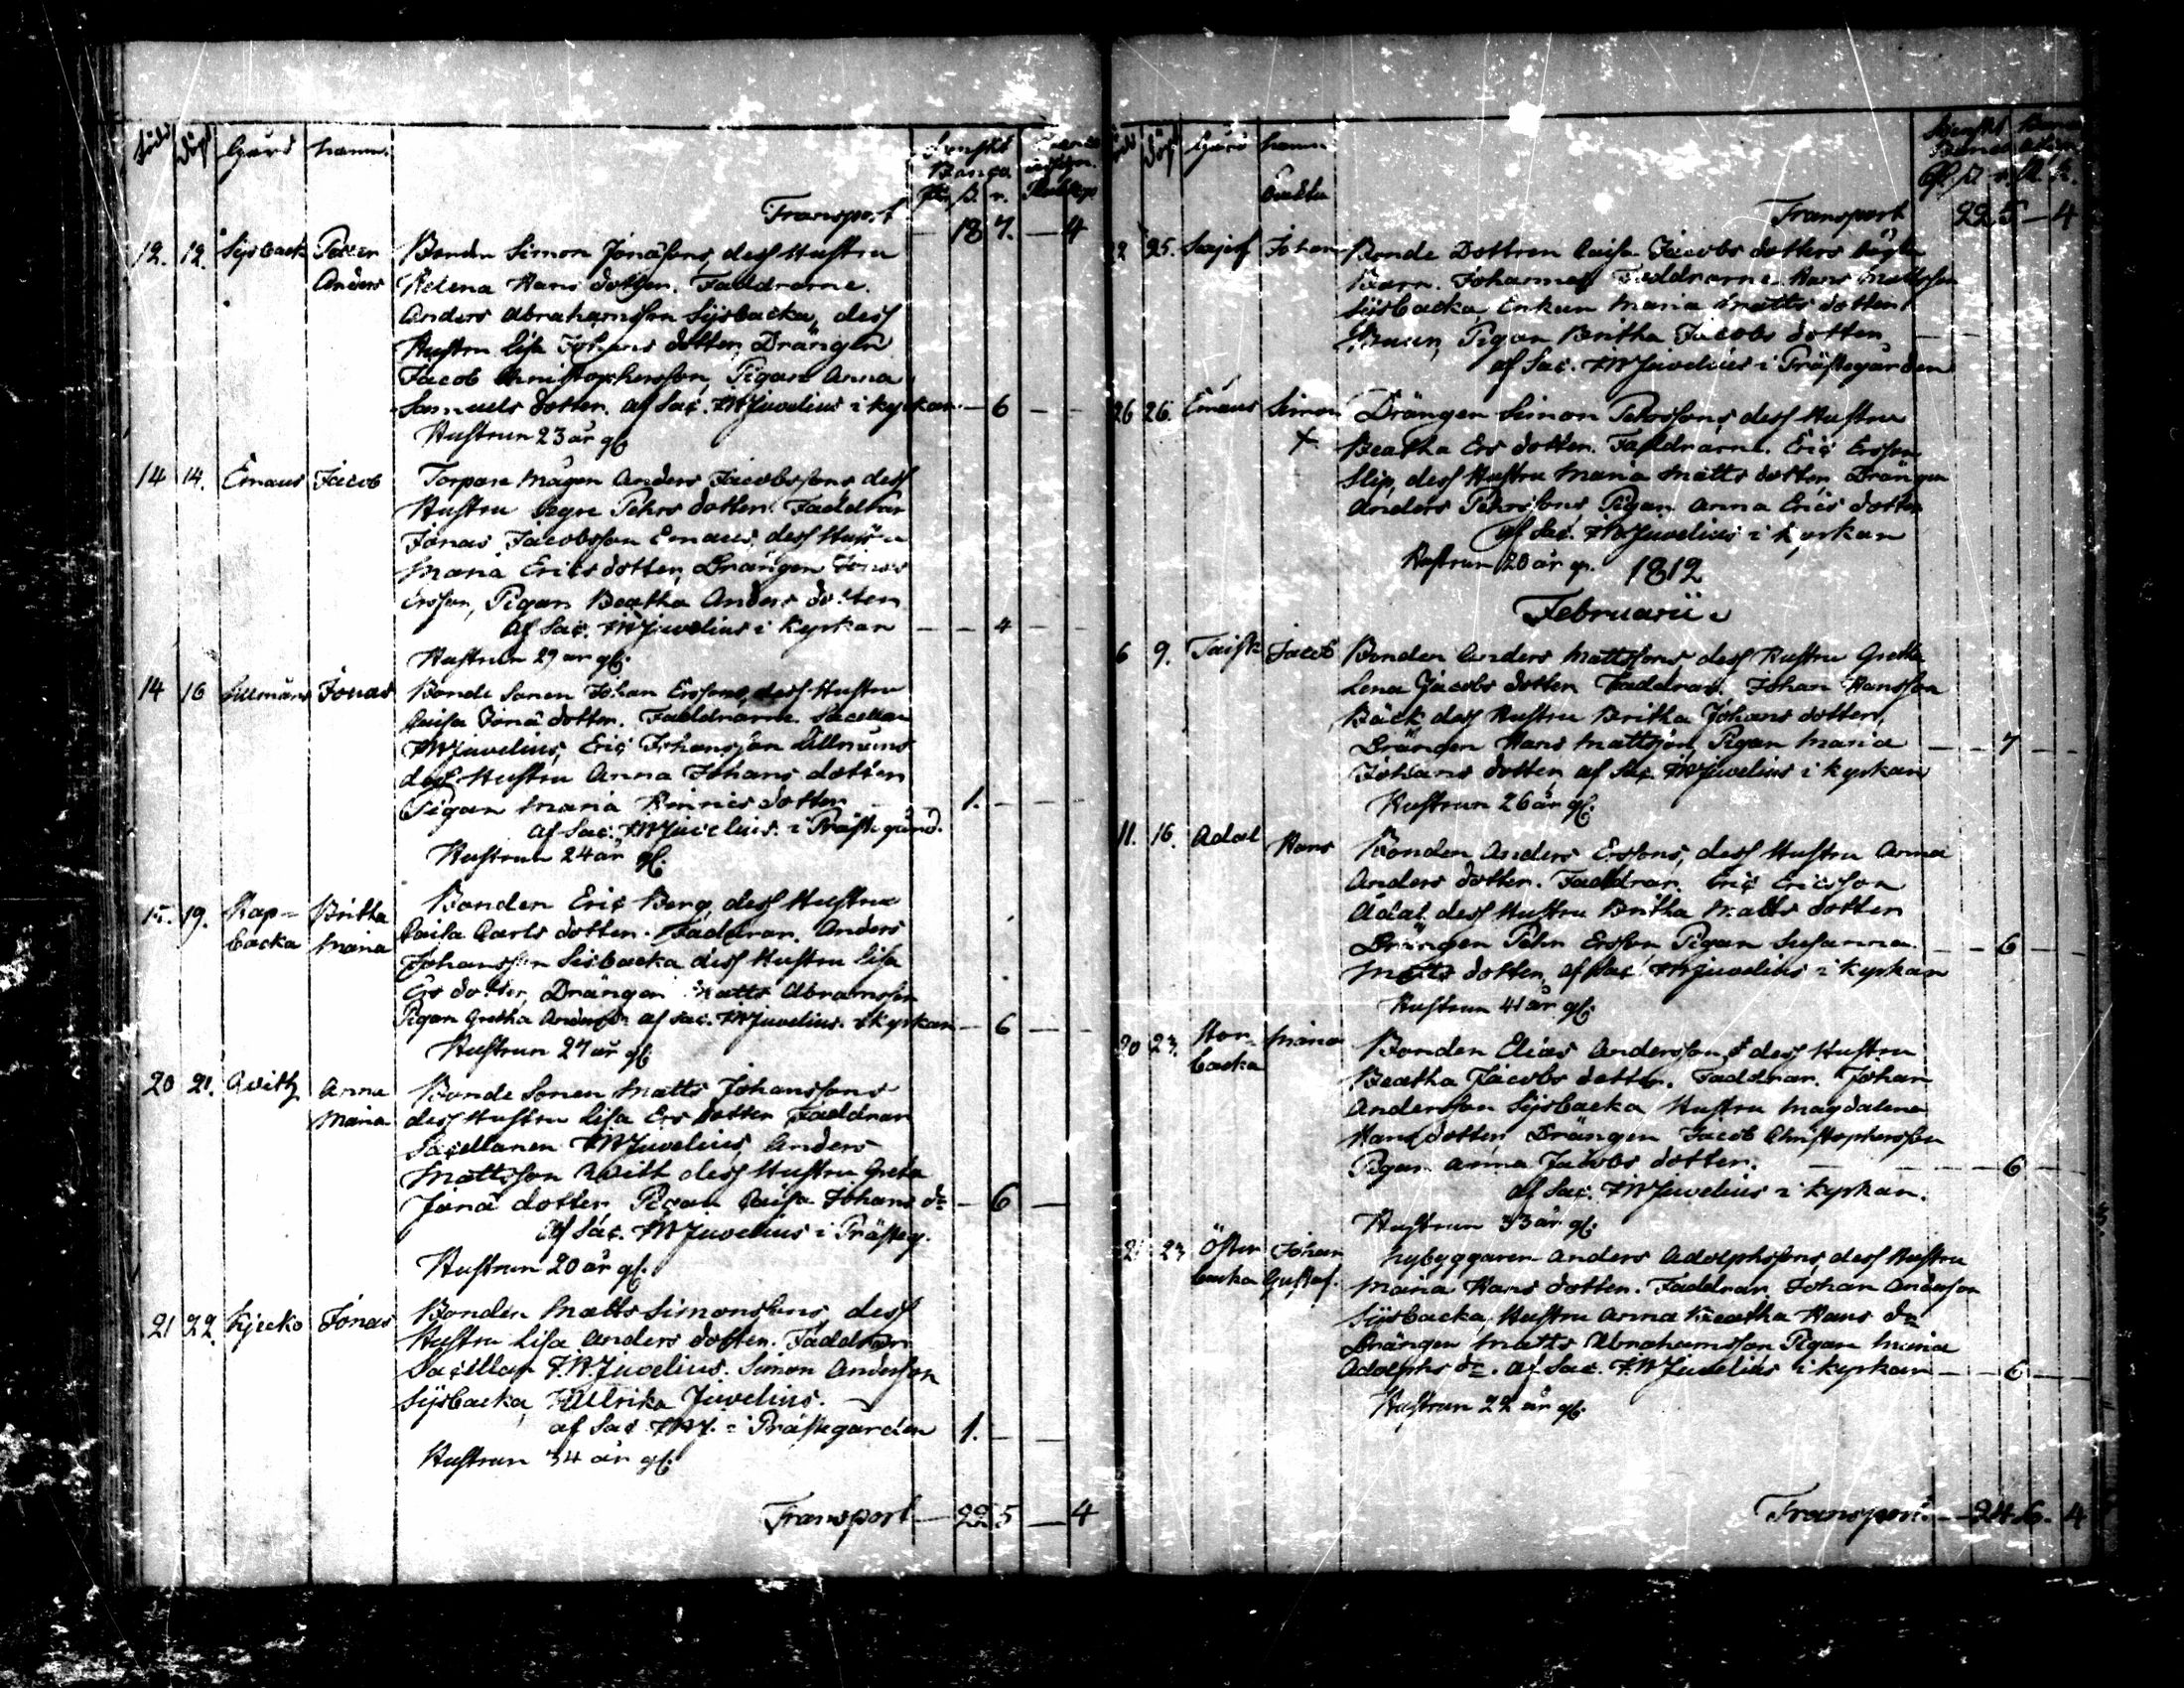 född döpt Gård namn. Svenskt
Banco
Rd. ß. r.
Transport 18 7. — 4
12. 12. Sijsback Petter Bonden Simon Jonässons, dess Hustru
Anders Helena Hans dotter. Faddrarne.
Anders Abrahamsson Sijsbacka, dess
Hustru Lisa Johans dotter, Drängen
Jacob Christophersson, Pigan Anna
Samuels dotter. af Sac. FWJuvelius i kyrkan — 6 — —
Hustrun 23 år gl.
14 14. Emaus Jacob Torpare mågen Anders Jacobssons dess
Hustru Segre Pehrs dotter. Faddrar
Jonas Jacobsson Emaus, dess Hustru
Maria Erics dotter, Drängen Jonas
Ersson, Pigan Beatha Anders dotter
af Sac. FWJuvelius i Kyrkan — — 4 — —
Hustrun 29 år gl.
14 16 Lillmåns Jonas Bonde Sonen Johan Erssons, dess Hustru
Caisa Jonä dotter. Faddrarne Sacellan
FWJuvelius, Eric Johansson Lillmåns
dess Hustru Anna Johans dotter
Pigan Maria Hinrics dotter 1. — — —
af Sac. FWJuvelius. i Prästegård.
Hustrun 24 år gl.
15. 19. Rap- Britha Bonden Eric Berg, dess Hustru
backa Maria Caisa Carls dotter. Faddrar. Anders
Johansson Sisbacka dess Hustru Lisa
Ers dotter, Drängen Matts Abramsson
Pigan Gretha Andersdr af Sac. FWJuvelius. i kyrkan — 6 — —
Hustrun 27 år gl.
20 21. Qvith Anna Bonde Sonen Matts Johanssons
Maria dess Hustru Lisa Ers dotter Faddrar
Sacellanen FWJuvelius, Anders
Mattsson Qvith dess Hustru Greta
Jonä dotter Pigan Caisa Johans dr — 6 —
af Sac. FWJuvelius i Prästeg.
Hustrun 20 år gl.
21 22. Kjecko Jonas Bonden Matts Simonssons, dess
Hustru Lisa Anders dotter. Faddrar
Sacellan F.W.Juvelius. Simon Andersson
Sijsbacka, Ulrika Juvelius.
af Sac. FWJ. i Prästegården 1. — —
Hustrun 34 år gl.
Transport — 22 5 — 4
född döpt Gård namn Svenskt
Banco
Transport 22 5 — 4
22 25. Johan Bonde Dottren Caisa Jacobs dotters
Barn. Johannes Faddrarne Hans Mattsson
Sijsbacka Enkan Maria Matts dotter
Pigan Britha Jacobs dotter — —
af Sac. FWJuvelius i Prästegården
26 26. Emaus Simon Drängen Simon Pehrssons, dess Hustru
+ Beatha Ers dotter. Faddrarne. Eric Ersson
Slip, dess Hustru Maria Matts dotter, Drängen
Anders Pehrssons, Pigan Anna Erics dotter
af Sac. FWJuvelius i kyrkan
Hustrun 20 år gl. 1812
Februarii
6 9. Taist Jacob Bonden Anders Mattssons dess Hustru Greta
Lena Jacobs dotter Faddrar. Johan Hansson
Bäck dess Hustru Britha Johans dotter,
Drängen Hans Mattsson, Pigan Maria — — 7 — —
Johans dotter, af Sac. FWJuvelius i kyrkan
Hustrun 26 år gl.
11. 16. Adal Hans Bonden Anders Erssons, dess Hustru Anna
Anders dotter. Faddrar. Eric Ericsson
Adal dess Hustru Britha Matts dotter
Drängen Pehr Ersson Pigan Susanna — — 6 —
Matts dotter, af Sac. FWJuvelius i kyrkan
Hustrun 41 år gl.
20 23. Stor- Maria Bonden Elias Anderssons dess Hustru
backa Beatha Jacobs dotter. Faddrar. Johan
Andersson Sijsbacka Hustru Magdalena
Hans dotter, Drängen Jacob Christophersson
Pigan Anna Jacobs dotter. — — — 6 —
af Sac. FWJuvelius i kyrkan.
Hustrun 33 år gl.
21 23 Öster Johan Nybyggaren Anders Adolphssons, dess Hustru
backa Gustaf. Maria Hans dotter. Faddrar, Johan Andersson
Sijsbacka, Hustru Anna Beatha Hans dr
Drängen Matts Abrahamsson Pigan Maria
Adolphs dr. af Sac. FWJuvelius i kyrkan — — 6 — —
Hustrun 22 år gl.
Transport. — — 24 6 — 4